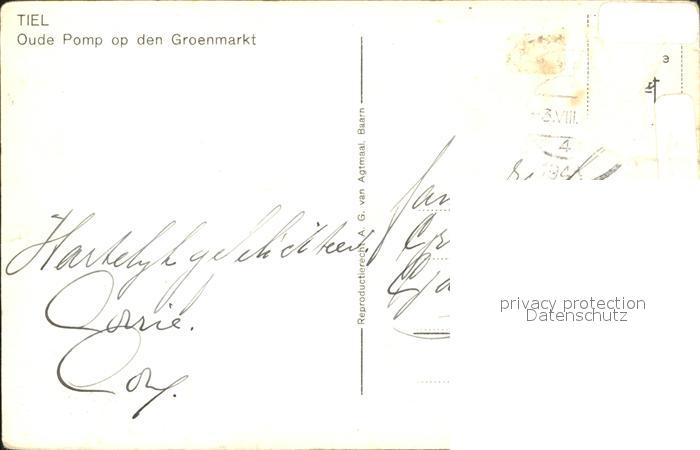 TIEL
Oude Pomp op den Groenmarkt
Reproductierecht A. G. van Agtmaal, Baarn
3.VIII.
4
Hartelijk gefeliciteerd.
Corrie.
Cory.
privacy protection
Datenschutz